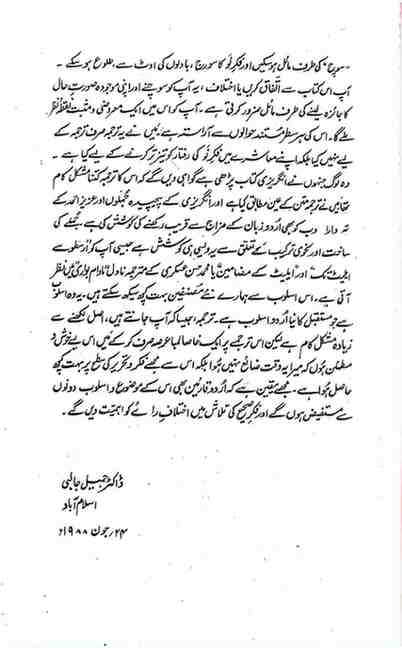 "سوچ" کی طرف مائل ہو سکیں اور فکرِ نو کا سورج، بادلوں کی اوٹ سے طلوع ہو سکے۔
آپ اس کتاب سے اتفاق کریں یا اختلاف، یہ آپ کو سوچنے اور اپنی موجودہ صورتِ حال
کا جائزہ لینے کی طرف مائل ضرور کرتی ہے۔ آپ کو اس میں ایک معروضی و مثبت نقطۂ نظر
ملے گا۔ اس کی ہر سطر مستند حوالوں سے آراستہ ہے۔ میں نے یہ ترجمہ صرف ترجمہ کے
لیے نہیں کیا بلکہ اپنے معاشرے میں فکرِ نو کی رفتار کو تیز تر کرنے کے لیے کیا ہے۔
وہ لوگ جنہوں نے انگریزی کتاب پڑھی ہے گواہی دیں گے کہ اس کا ترجمہ کتنا مشکل کام
تھا میں نے ترجمہ متن کے عین مطابق کیا ہے اور انگریزی کے پیچیدہ جملوں اور عزیز احمد کے
تہ دار ادب کو بھی اُردو زبان کے مزاج سے قریب رکھنے کی کوشش کی ہے۔ جملے کی
ساخت اور نحوی ترکیب کے تعلق سے یہ ویسی ہی کوشش ہے جیسی آپ کو ارسطو سے
ایلیٹ تک اور ایلیٹ کے مضامین یا محمد حسن عسکری کے مترجمہ ناول مادام بواری میں نظر
آتی ہے۔ اس اسلوب سے ہمارے نئے مصنفین بہت کچھ سیکھ سکتے ہیں۔ یہ وہ اسلوب
ہے جو مستقبل کا نیا اُردو اسلوب ہے۔ ترجمہ، جیسا کہ آپ جانتے ہیں، اصل لکھنے سے
زیادہ مشکل کام ہے لیکن اس ترجمے پر ایک خاصا لمبا عرصہ صرف کر کے میں اس لیے خوش و
مطمئن ہوں کہ میرا یہ وقت ضائع نہیں ہوا بلکہ اس سے مجھے فکر و تحریر کی سطح پر بہت کچھ
حاصل ہوا ہے۔ مجھے یقین ہے کہ اُردو قارئین بھی اس کے موضوع و اسلوب دونوں
سے مستفیض ہوں گے اور فکرِ صحیح کی تلاش میں اختلافِ رائے کو اہمیت دیں گے۔
ڈاکٹر جمیل جالبی
اسلام آباد
۲۴؍ جون ۱۹۸۸ء